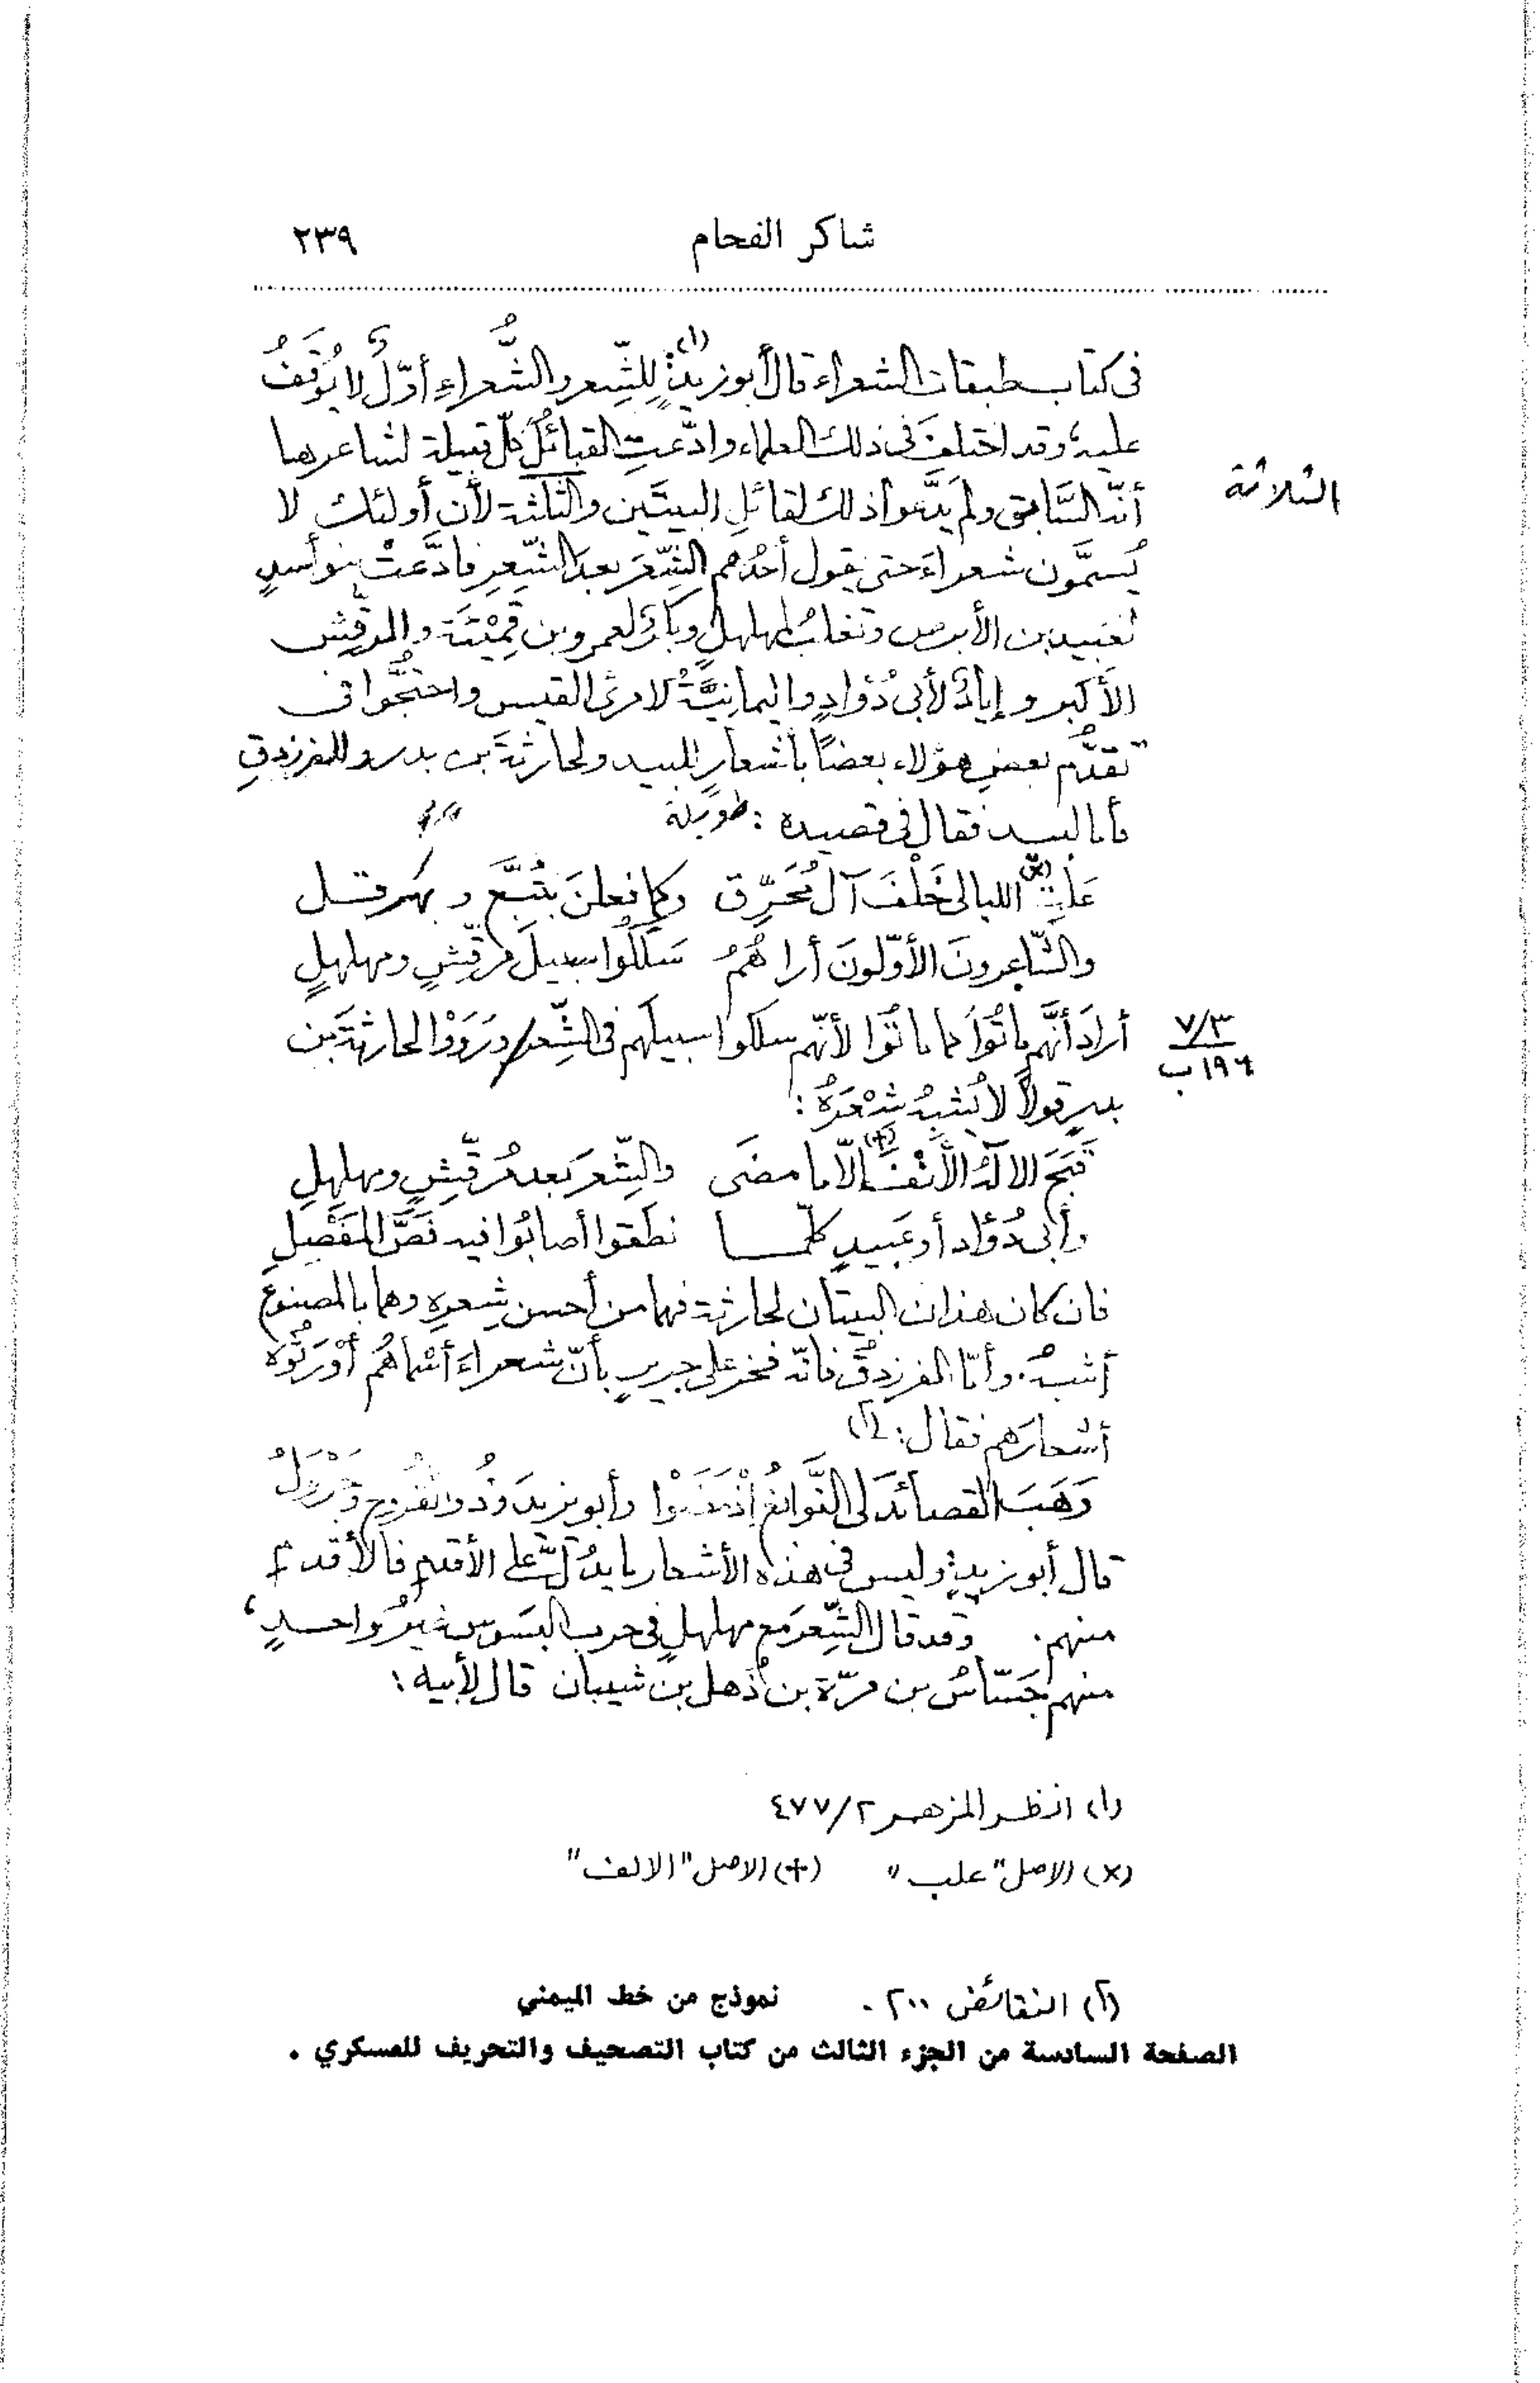 شاكر الفحام ٢٣٩
فى كتاب طبقات الشعراء قال أبو زيدٍ (١): لِلشِّعر والشُّعراءِ أوّلٌ لا يُوقَفُ
عليه، وقد اختلفَ فى ذلك العلماء وادّعتِ القبائلُ كلّ قبيلة لشاعرها
أنّه السَّابق ولم يَدَّعوا ذلك لقائلِ البيتَين والثلثة لأن أولئك لا
الثلاثة
يُسمَّون شعراءَ حتى يقول أحدُهم الشِّعرَ بعد الشِّعرِ فادَّعتْ بنو أسدٍ
لعَبيد بن الأبرص وتغلبُ لمهلهلٍ وبَكرٌ لعمرو بن قَمِيْئَةَ والمرقّش
الأكبر وإيادٌ لأبى دُؤادٍ واليمانِيَّةُ لامرئ القيس واحتجُّوا فى
تقدُّم بعضِ هؤلاء بعضًا بأشعارٍ للبيد ولحارثةَ بن بدر وللفرزدقِ
فأما لبيد فقال فى قصيده : طويلة
عَلِبَ (×) الليالى خَلْفَ آل مُحَرِّق وكما فعلنَ بتُبَّع وبهرقل
والشّاعرونَ الأوّلونَ أراهُمُ سَلَكُوا سبيلَ مرقِّشٍ ومهلهلٍ
أرادَ أنَّهم ماتُوا كما ماتُوا لأنّهم سلكوا سبيلَهم فى الشِّعر / ورَوَوْا لحارثةَ بن
٧/٣
١٩٦ ب
بدرٍ قولاً لا يُشبِهُ شِعْرَهُ :
قَبَحَ الالهُ الأَنْفَ (+) إلّا ما مضَى والشِّعرَ بعد مُرقِّشٍ ومهلهِلِ
وأبى دُؤاد أو عَبيدٍ كلّمـــا نطَقوا أصابُوا فيه نَصَّ المَفْصِلِ
فان كان هذان البيتان لحارثة فهما من أحسن شِعرِه وهما بالمصنوع
أشبهُ. وأمّا الفرزدقُ فانّه فخر على جريرٍ بأنّ شعراءَ أسماهُم أوْرَثُوه
أشعارَهم فقال : (٢)
وَهَبَ القصائدَ لى النَّوابغُ إذْ مَضَوْا وأبو يزيدَ وذُو القُروحِ وجَرْوَلُ
قال أبو زيدٍ: وليس فى هذه الأشعار ما يدُلُّ على الأقدمِ فالأقدم
منهم. وقد قال الشِّعرَ مع مهلهلٍ فى حرب البَسوس غيرُ واحدٍ،
منهم جَسّاسُ بن مرّة بن ذُهل بن شيبان قال لأبيه :
(١) انظر المزهر ٢/ ٤٧٧
(×) الاصل "علب" (+) الاصل "الالف"
(٢) النقائض ٢٠٠. نموذج من خط الميمني
الصفحة السادسة من الجزء الثالث من كتاب التصحيف والتحريف للعسكري .